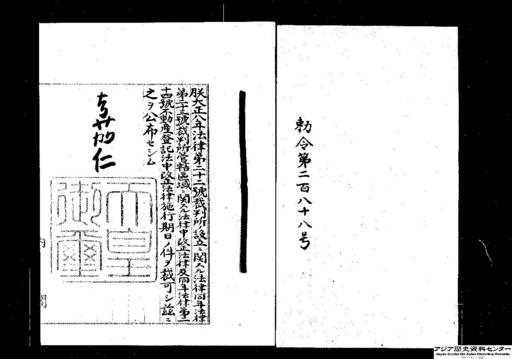 勅令第二百八十八号
朕大正八年法律第二十二號裁判所ノ設立ニ關スル法律同年法律
第二十三號裁判所管轄區域ニ關スル法律中改正法律及同年法律第二
十四號不動産登記法中改正法律施行期日ノ件ヲ裁可シ茲ニ
之ヲ公布セシム
嘉仁
天皇
御璽
アジア歴史資料センター
Japan Center for Asian Historical Records